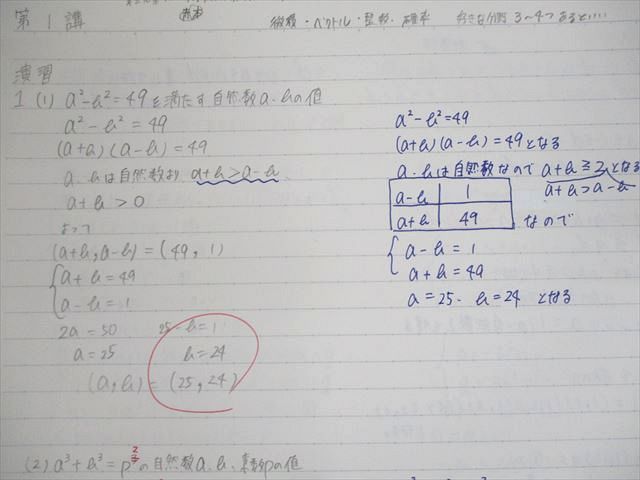 第1講
微積・ベクトル・整数・確率 好きな分野3~4つあるといい…
演習
1 (1) a²-b²=49を満たす自然数a.bの値
a²-b²=49
(a+b)(a-b)=49
a.bは自然数より a+b>a-b
a+b>0
よって
(a+b,a-b)=(49,1)
a+b=49
a-b=1
2a=50 25-b=1
a=25 b=24
(a,b)=(25,24)
a²-b²=49
(a+b)(a-b)=49となる
a.bは自然数なので a+b≧2となる
a+b>a-b
a-b 1
a+b 49 なので
a-b=1
a+b=49
a=25. b=24 となる
(2) a³+b³=p³の自然数a.b、素数pの値
2